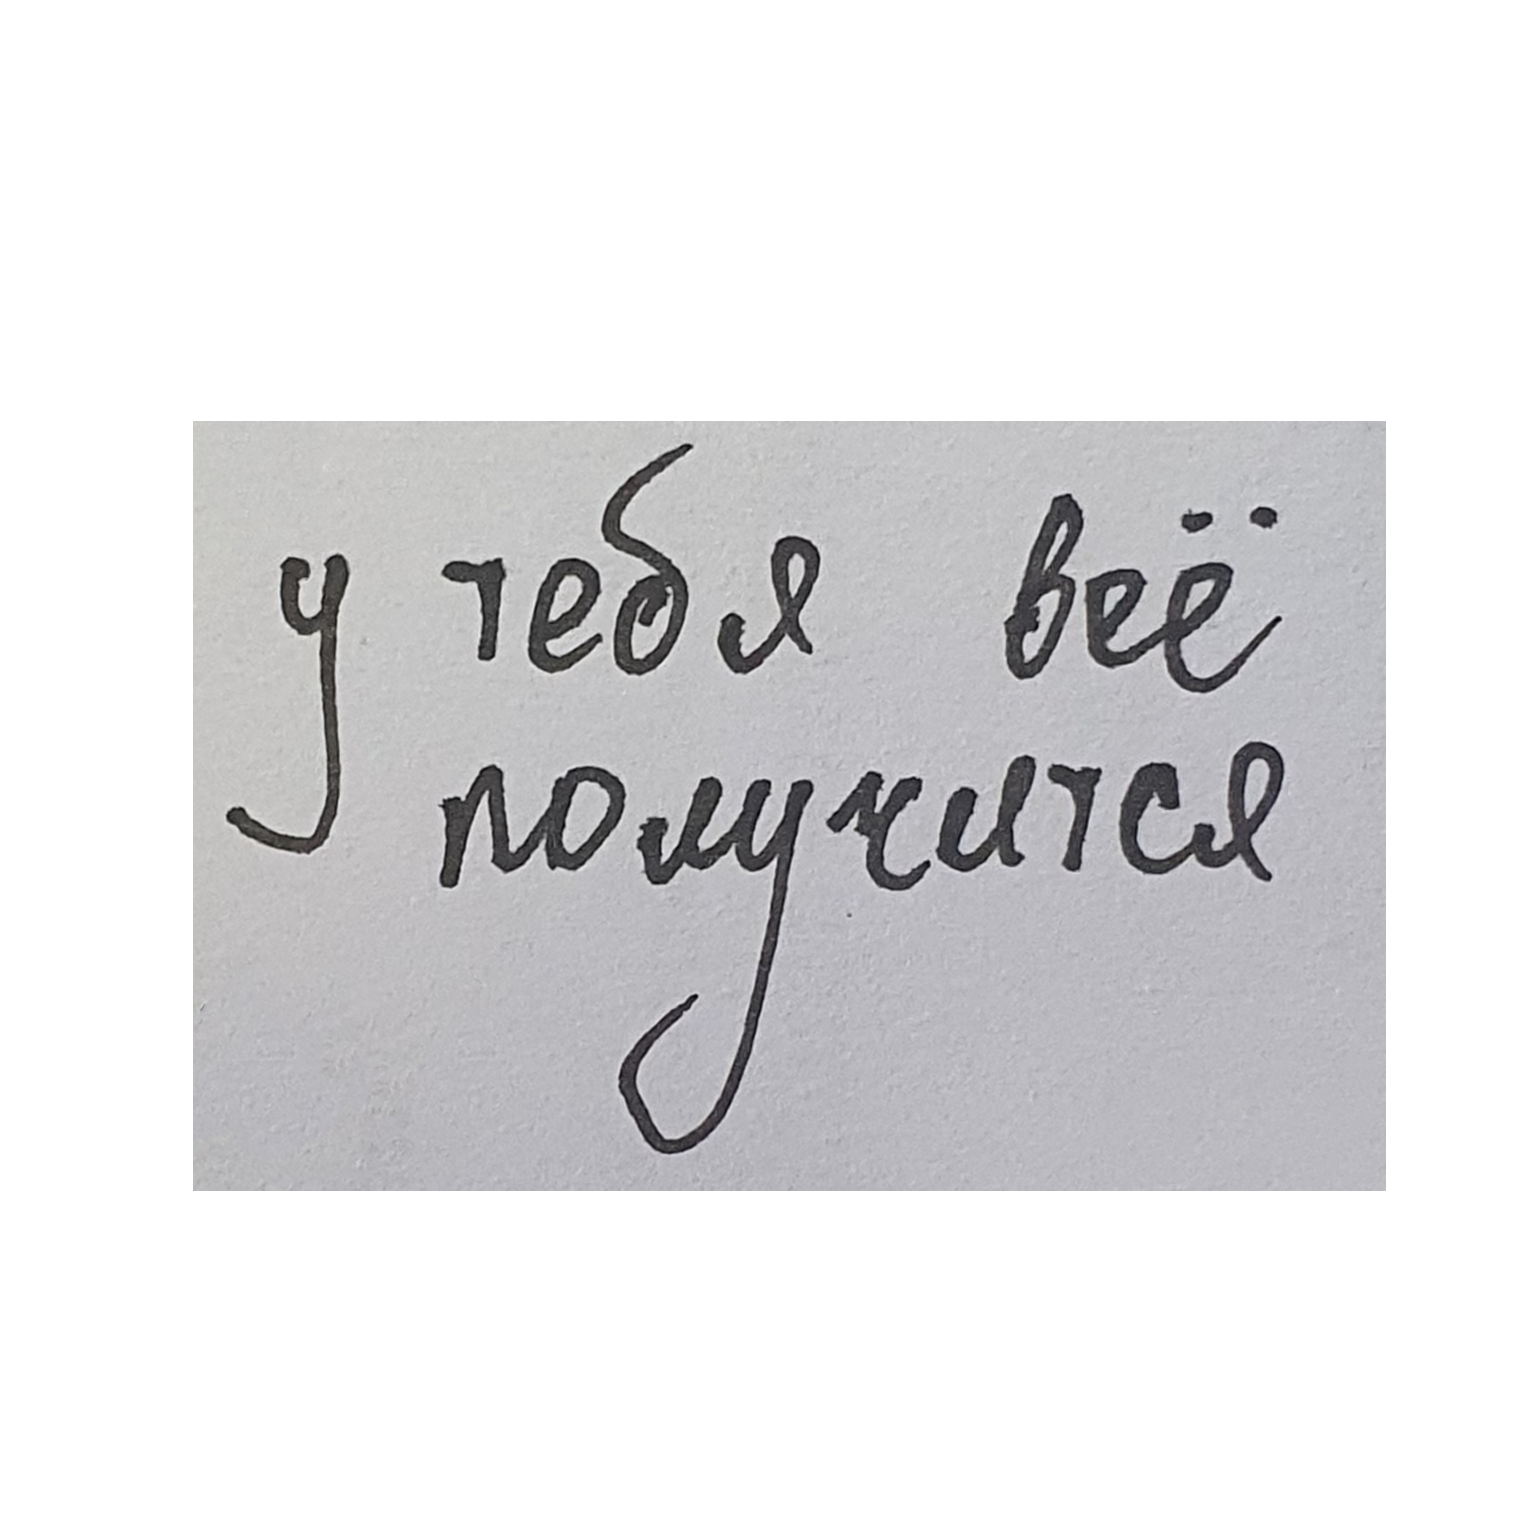 у тебя всё
получится